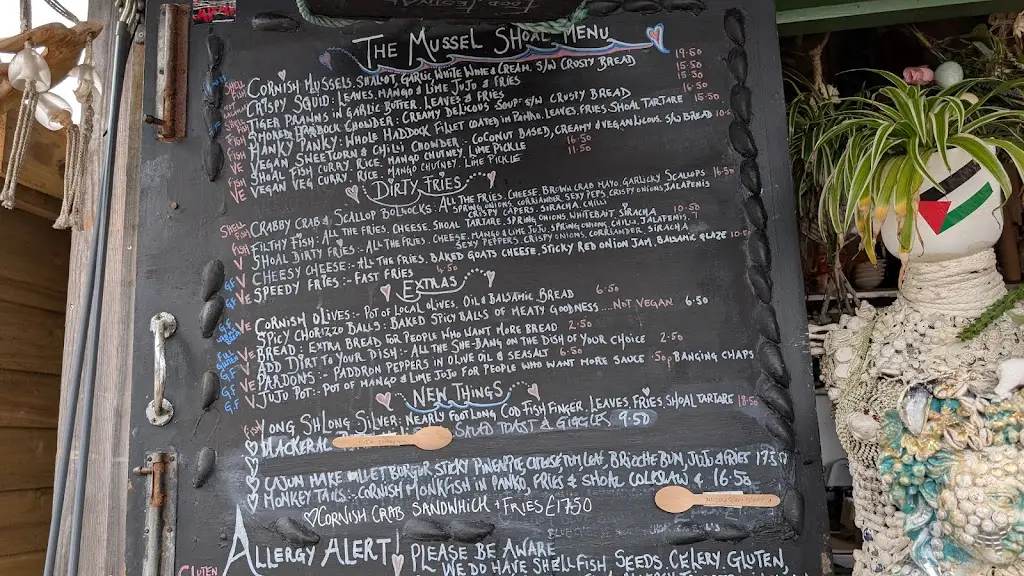 THE MUSSEL SHOAL MENU
CORNISH MUSSELS. SHALLOT, GARLIC, WHITE WINE & CREAM. S/W CRUSTY BREAD 19.50
CRISPY SQUID: LEAVES, MANGO & LIME JUJU & FRIES 15.50
TIGER PRAWNS IN GARLIC BUTTER. LEAVES & FRIES 15.50
SMOKED HADDOCK CHOWDER: CREAMY DELICIOUS SOUP S/W CRUSTY BREAD
HANKY PANKY: WHOLE HADDOCK FILLET COATED IN PANKO. LEAVES. FRIES. SHOAL TARTARE 15.50
VEGAN SWEETCORN & CHILLI CHOWDER: COCONUT BASED, CREAMY & VEGANLICIOUS. S/W BREAD
SHOAL FISH CURRY. RICE. MANGO CHUTNEY. LIME PICKLE
VEGAN VEG CURRY. RICE. MANGO CHUTNEY. LIME PICKLE 11.50
DIRTY FRIES
CRABBY CRAB & SCALLOP BOLLOCKS: ALL THE FRIES. CHEESE. BROWN CRAB MAYO. GARLICKY SCALLOPS 16.50
SPRING ONIONS. CORRIANDER. SEXY PEPS. CRISPY ONIONS. JALAPENIS
FILTHY FISH: ALL THE FRIES. CHEESE. SHOAL TARTARE. SPRING ONIONS. WHITEBAIT. SIRACHA
CRISPY CAPERS. SIRACHA. CHILLI
SHOAL DIRTY FRIES: ALL THE FRIES. CHEESE. MANGO & LIME JUJU. SPRING ONIONS. CHILLI. JALAPENIS
SEXY PEPPERS. CRISPY ONIONS. CORRIANDER. SIRACHA
CHEESY CHEESE: ALL THE FRIES. BAKED GOATS CHEESE. STICKY RED ONION JAM. BALSAMIC GLAZE
SPEEDY FRIES:- FAST FRIES 4.50
EXTRAS
CORNISH OLIVES:- POT OF LOCAL OLIVES. OIL & BALSAMIC BREAD 6.50
SPICY CHORIZZO BALLS: BAKED SPICY BALLS OF MEATY GOODNESS....NOT VEGAN 6.50
BREAD: EXTRA BREAD FOR PEOPLE WHO WANT MORE BREAD 2.50
ADD DIRT TO YOUR DISH:- ALL THE SHE-BANG ON THE DISH OF YOUR CHOICE 2.50
PARDONS:- PADDRON PEPPERS IN OLIVE OIL & SEASALT 6.50
JUJU POT:- POT OF MANGO & LIME JUJU FOR PEOPLE WHO WANT MORE SAUCE .50p BANGING CHAPS
NEW THINGS
LONG SHLONG SILVER. NEARLY FOOTLONG COD FISH FINGER. LEAVES FRIES SHOAL TARTARE 18.50
MACKERAL SALAD TOAST & GIGGLES 9.50
CAJUN MAKE MULLET BURGUR STICKY PINEAPPLE, CHEESE, TOM, LEAF, BRIOCHE BUN, JUJU & FRIES
MONKEY TAILS: CORNISH MONKFISH IN PANKO, FRIES & SHOAL COLESLAW & 16.50
CORNISH CRAB SANDWHICK + FRIES £17.50
ALLERGY ALERT! PLEASE BE AWARE
WE DO HAVE SHELLFISH SEEDS. CELERY. GLUTEN,
GLUTEN